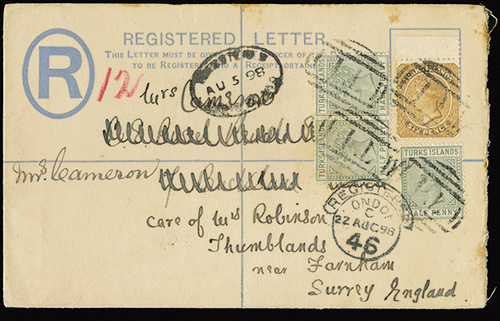 REGISTERED LETTER.
THIS LETTER MUST BE GIVEN TO AN OFFICER OF
TO BE REGISTERED AND A RECEIPT OBTAINED
R
12
AU 5 98
Mrs
Cameron
Mrs. Cameron
care of Mrs Robinson
Thumblands
near Farnham
Surrey England
TURKS ISLANDS
HALF PENNY
TURKS ISLANDS
HALF PENNY
SIX PENCE
TURKS ISLANDS
HALF PENNY
REGISTERED
LONDON
C
22 AUG 98
46